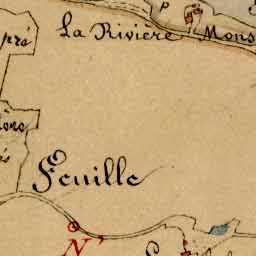 P
La Rivière Mons
pré
Feuille
N